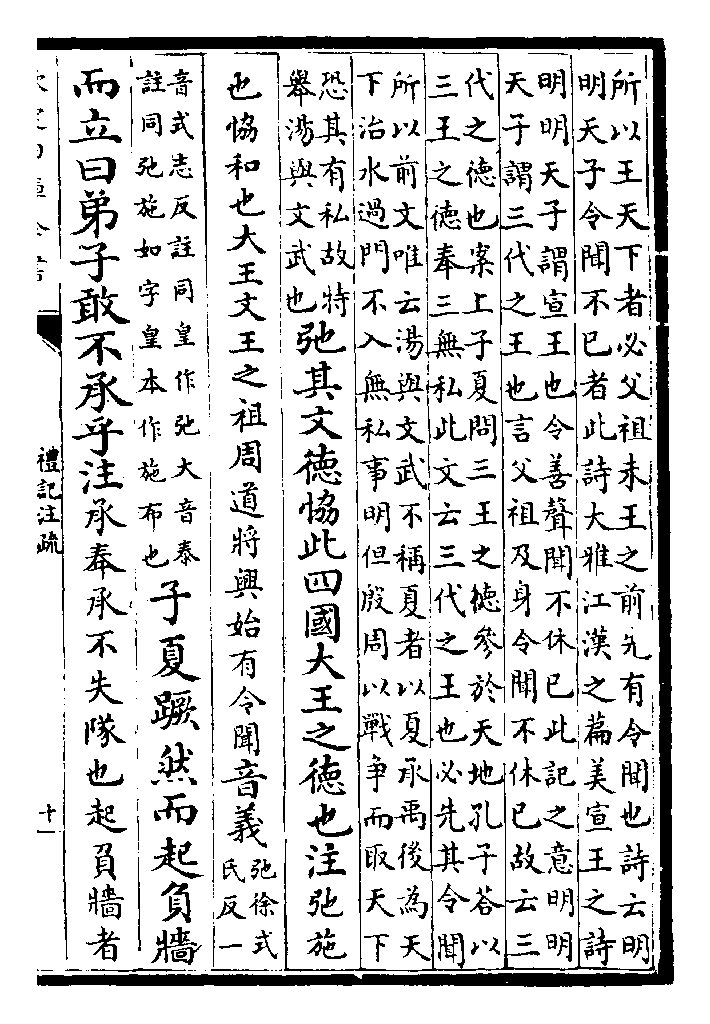 所以王天下者必父祖未王之前先有令聞也詩云明
明天子令聞不已者此詩大雅江漢之篇美宣王之詩
明明天子謂宣王也令善聲聞不休已此記之意明明
天子謂三代之王也言父祖及身令聞不休已故云三
代之德也案上子夏問三王之德參於天地孔子答以
三王之德奉三無私此文云三代之王也必先其令聞
所以前文唯云湯與文武不稱夏者以夏承禹後為天
下治水過門不入無私事明但殷周以戰争而取天下
恐其有私故特
舉湯與文武也
弛其文德協此四國大王之德也注弛施
也協和也大王文王之祖周道將興始有令聞音義
弛徐式
氏反一
音式志反註同皇作弛大音泰
註同弛施如字皇本作施布也
子夏蹶然而起負牆
而立曰弟子敢不承乎注承奉承不失隊也起負牆者
禮記注疏
十一